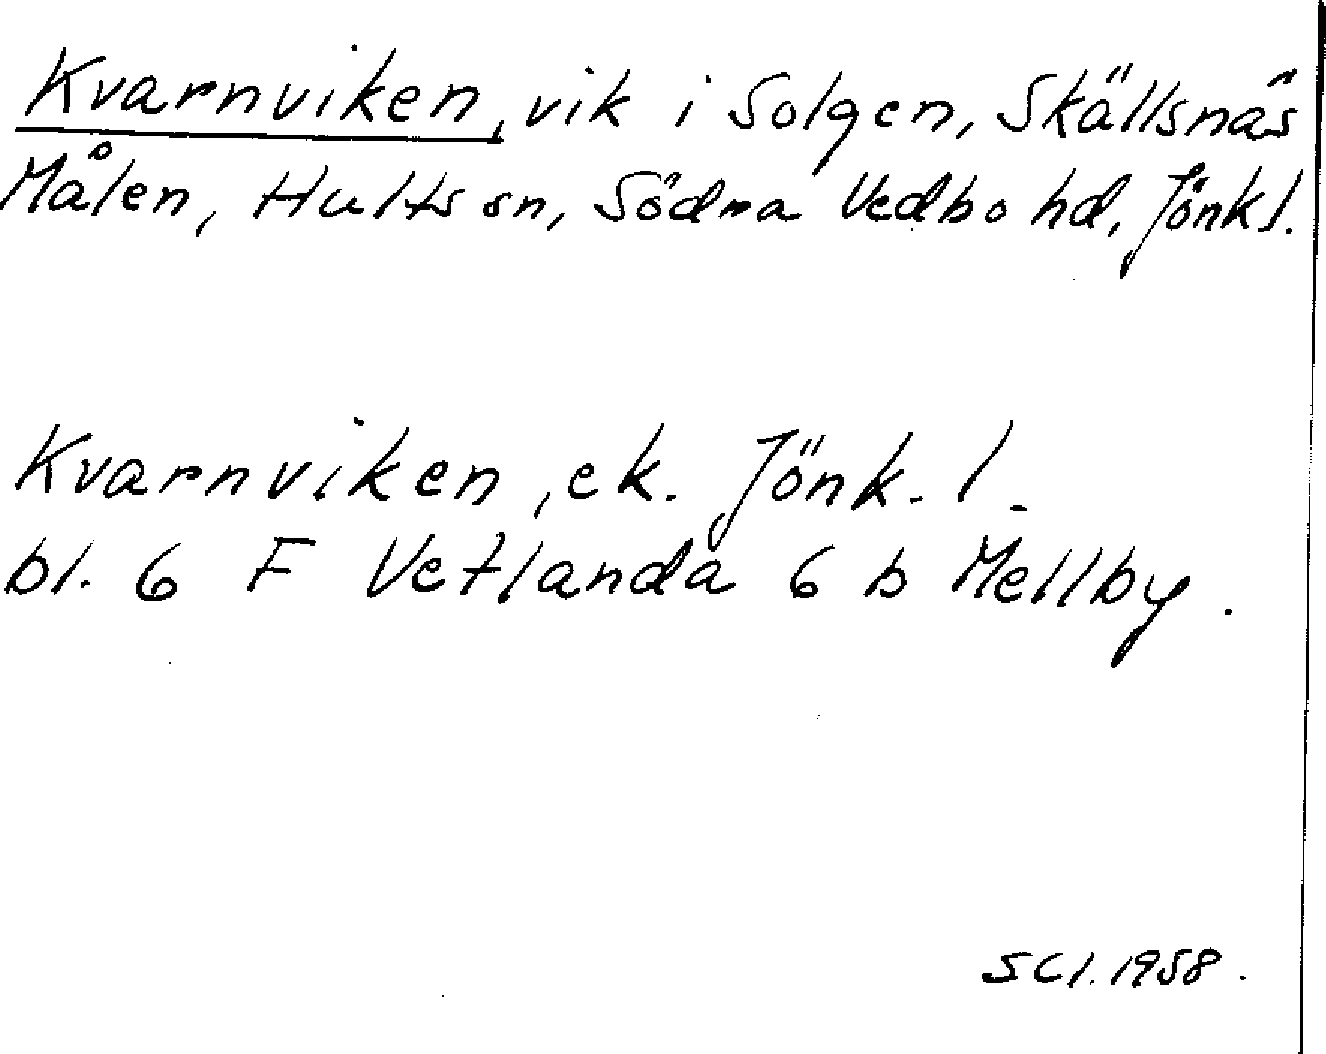 Kvarnviken, vik i Solgen, Skällsnäs
Målen, Hults sn, Södra Vedbo hd, Jönk l.
Kvarnviken, ek. Jönk. l.
bl. 6 F Vetlanda 6 b Mellby.
SCI. 1958.